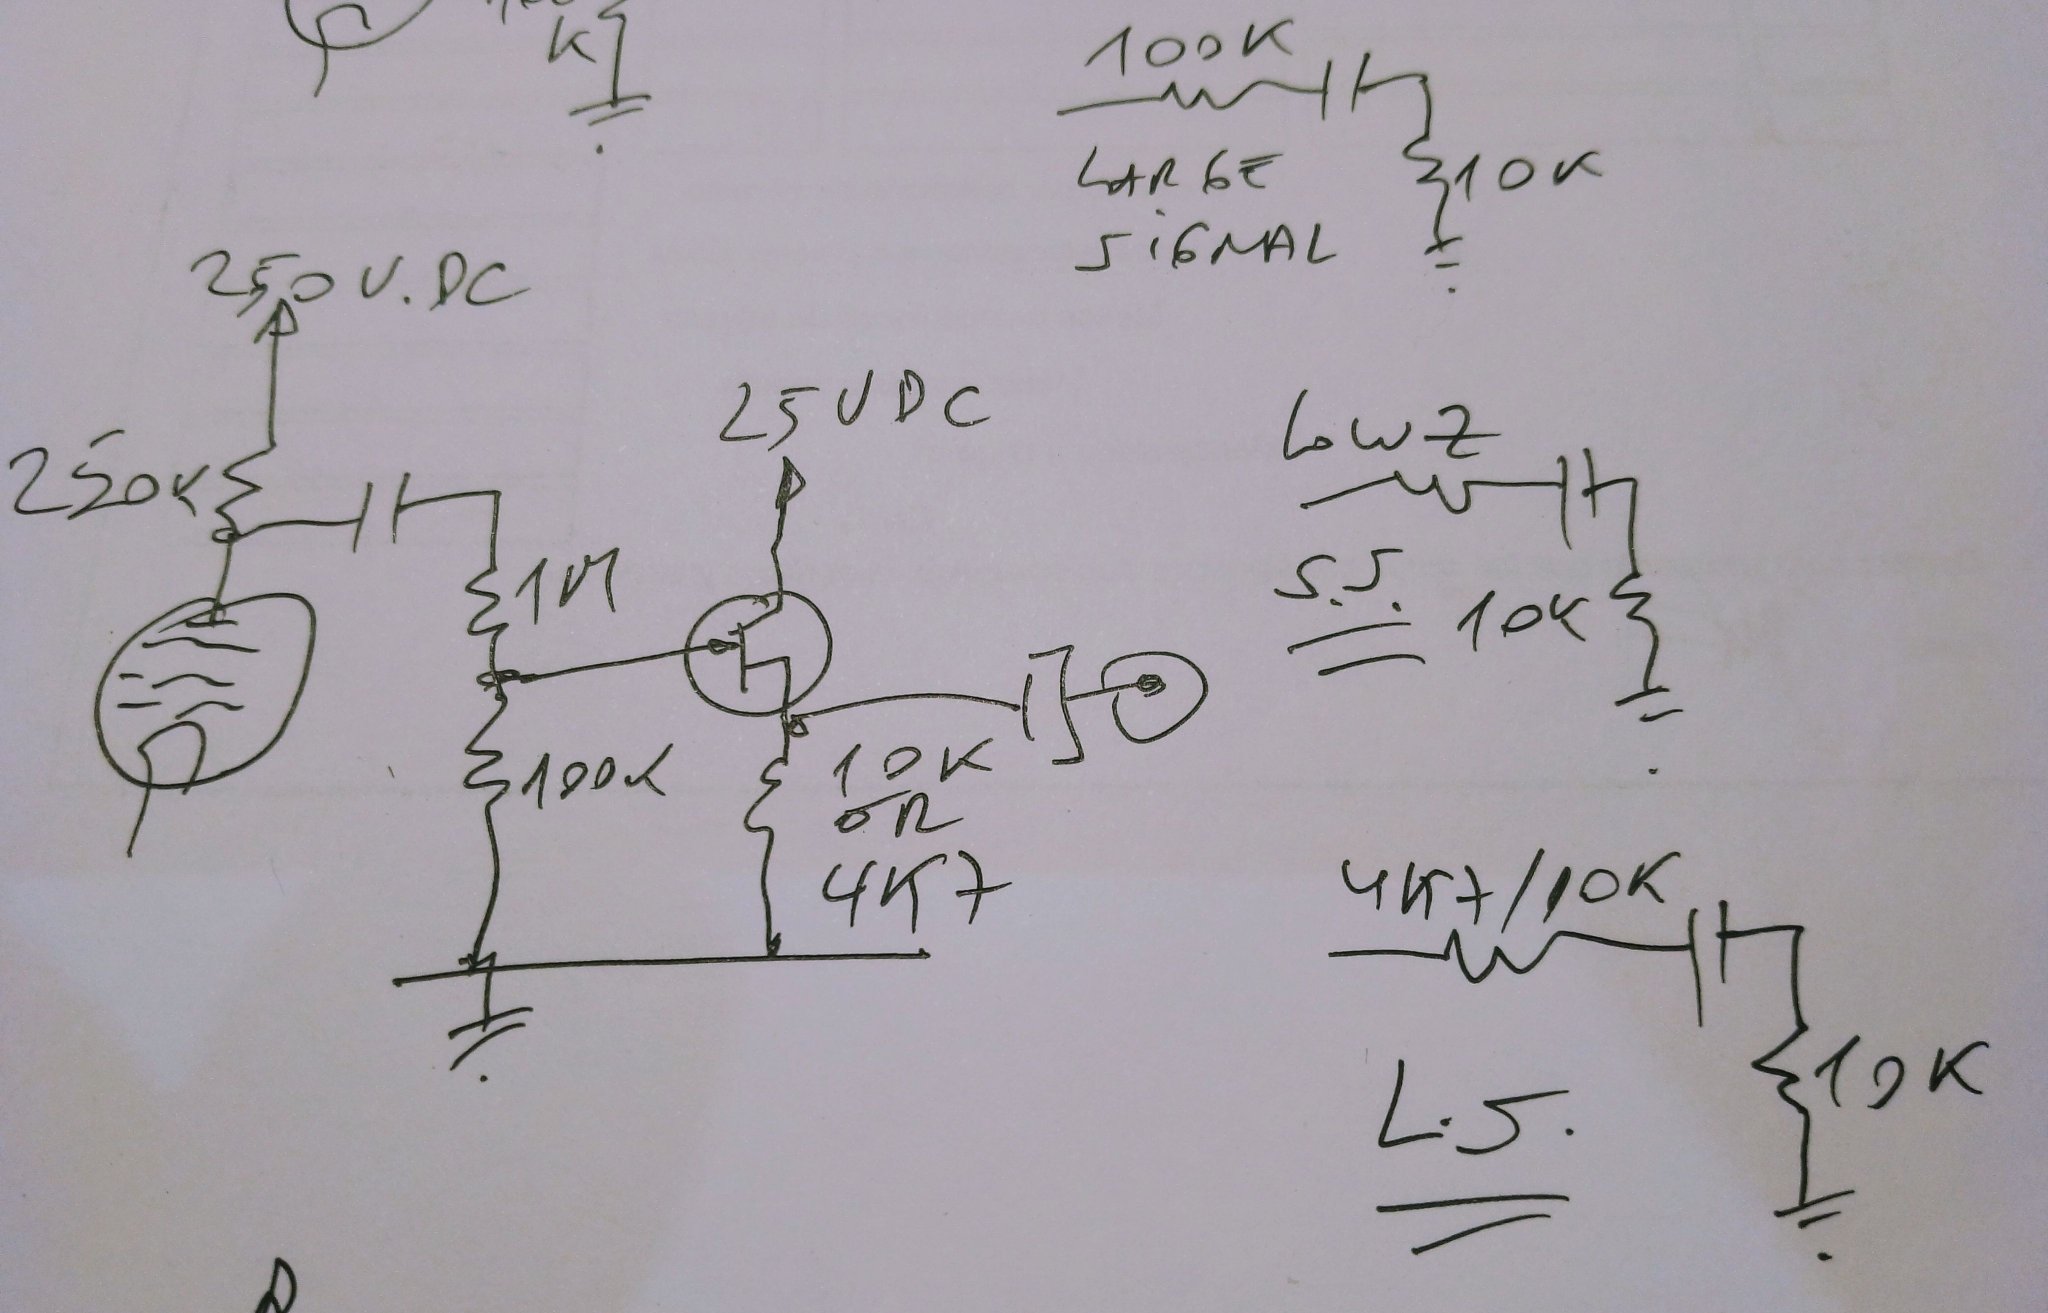 K
100K
LARGE
SIGNAL
10K
250V.DC
250K
25VDC
1M
100K
10K
OR
4K7
LOW Z
S.S.
10K
4K7/10K
L.S.
10K